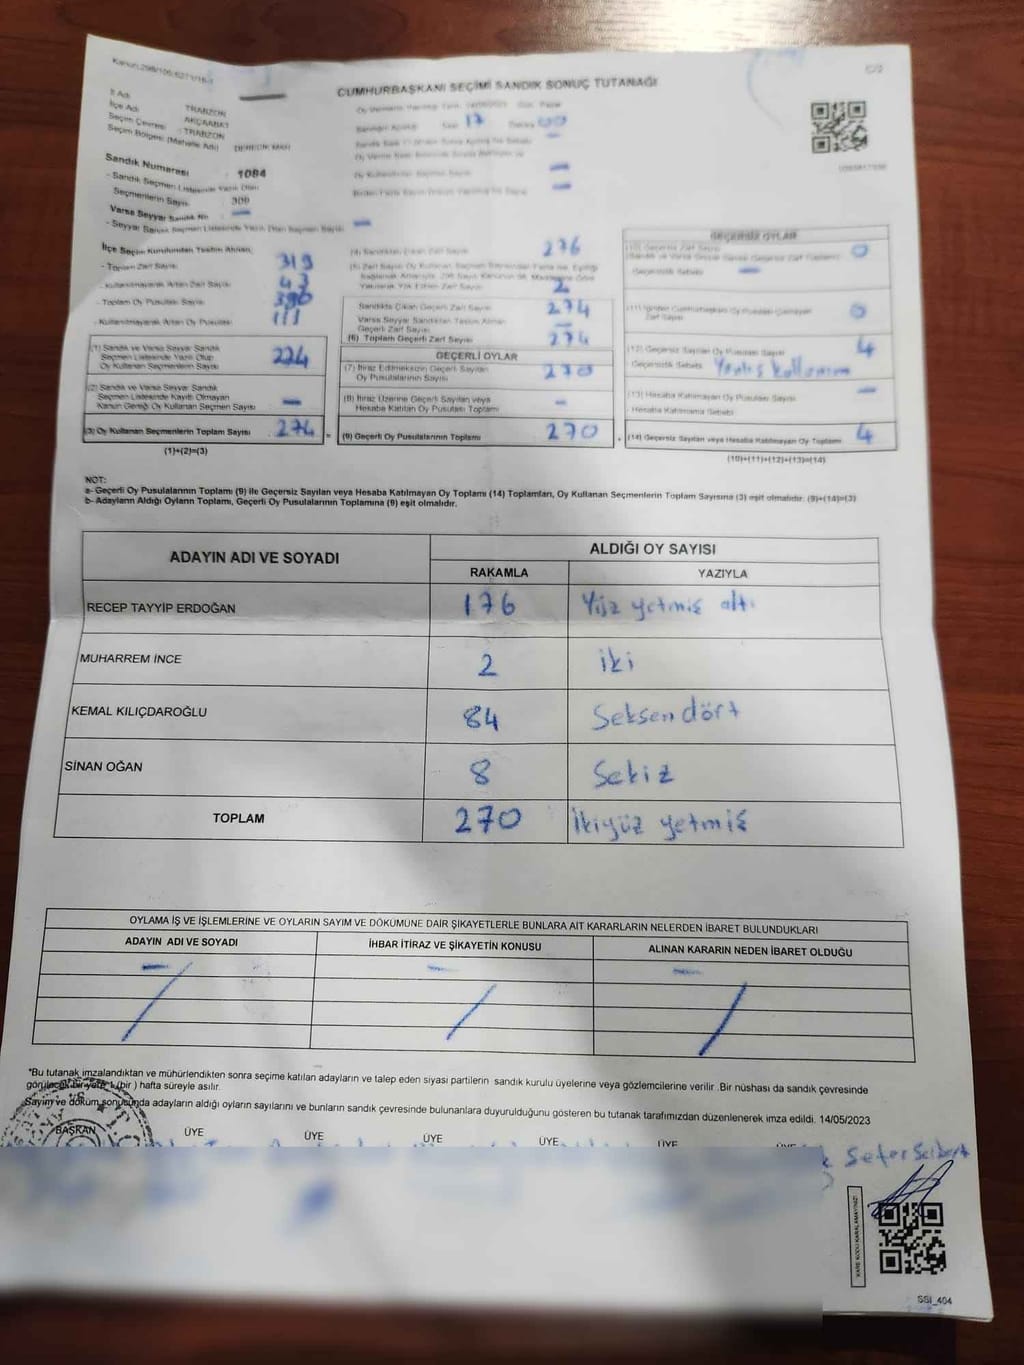 CUMHURBAŞKANI SEÇİMİ SANDIK SONUÇ TUTANAĞI
C/2
İl Adı TRABZON
İlçe Adı AKÇAABAT
Seçim Çevresi : TRABZON
Seçim Bölgesi (Mahalle Adı)
Saat 17 00
Sandık Numarası 1084
- Sandık Seçmen Listesinde Yazılı Olan
Seçmenlerin Sayısı 309
Varsa Seyyar Sandık No —
- Seyyar Sandık Seçmen Listesinde Yazılı Olan Seçmen Sayısı —
İlçe Seçim Kurulundan Teslim Alınan;
- Toplam Zarf Sayısı 319
- Kullanılmayarak Artan Zarf Sayısı 43
- Toplam Oy Pusulası Sayısı
- Kullanılmayarak Artan Oy Pusulası 111
(1) Sandık ve Varsa Seyyar Sandık
Seçmen Listesinde Yazılı Olup
Oy Kullanan Seçmenlerin Sayısı 274
(2) Sandık ve Varsa Seyyar Sandık
Seçmen Listesinde Kayıtlı Olmayan
Kanun Gereği Oy Kullanan Seçmen Sayısı —
(3) Oy Kullanan Seçmenlerin Toplam Sayısı 274
(1)+(2)=(3)
(4) Sandıktan Çıkan Zarf Sayısı 276
2
Sandıkta Çıkan Geçerli Zarf Sayısı 274
Varsa Seyyar Sandıktan Teslim Alınan
Geçerli Zarf Sayısı —
(6) Toplam Geçerli Zarf Sayısı 274
GEÇERLİ OYLAR
(7) İtiraz Edilmeksizin Geçerli Sayılan
Oy Pusulalarının Sayısı 270
(8) İtiraz Üzerine Geçerli Sayılan veya
Hesaba Katılan Oy Pusulaları Toplamı —
(9) Geçerli Oy Pusulalarının Toplamı 270
GEÇERSİZ OYLAR
(10) Geçersiz Zarf Sayısı 0
Geçersizlik Sebebi —
Zarf Sayısı 0
(12) Geçersiz Sayılan Oy Pusulası Sayısı 4
Geçersizlik Sebebi Yanlış kullanım
(13) Hesaba Katılmayan Oy Pusulası Sayısı —
- Hesaba Katılmama Sebebi
(14) Geçersiz Sayılan veya Hesaba Katılmayan Oy Toplamı 4
(10)+(11)+(12)+(13)=(14)
NOT:
a- Geçerli Oy Pusulalarının Toplamı (9) ile Geçersiz Sayılan veya Hesaba Katılmayan Oy Toplamı (14) Toplamları, Oy Kullanan Seçmenlerin Toplam Sayısına (3) eşit olmalıdır. (9)+(14)=(3)
b- Adayların Aldığı Oyların Toplamı, Geçerli Oy Pusulalarının Toplamına (9) eşit olmalıdır.
ADAYIN ADI VE SOYADI
ALDIĞI OY SAYISI
RAKAMLA YAZIYLA
RECEP TAYYİP ERDOĞAN 176 Yüz yetmiş altı
MUHARREM İNCE 2 iki
KEMAL KILIÇDAROĞLU 84 Seksen dört
SİNAN OĞAN 8 Sekiz
TOPLAM 270 İkiyüz yetmiş
OYLAMA İŞ VE İŞLEMLERİNE VE OYLARIN SAYIM VE DÖKÜMÜNE DAİR ŞİKAYETLERLE BUNLARA AİT KARARLARIN NELERDEN İBARET BULUNDUKLARI
ADAYIN ADI VE SOYADI İHBAR İTİRAZ VE ŞİKAYETİN KONUSU ALINAN KARARIN NEDEN İBARET OLDUĞU
*Bu tutanak imzalandıktan ve mühürlendikten sonra seçime katılan adayların ve talep eden siyasi partilerin sandık kurulu üyelerine veya gözlemcilerine verilir. Bir nüshası da sandık çevresinde
görülecek bir yere 1 (bir) hafta süreyle asılır.
Sayım ve döküm sonucunda adayların aldığı oyların sayılarını ve bunların sandık çevresinde bulunanlara duyurulduğunu gösteren bu tutanak tarafımızdan düzenlenerek imza edildi. 14/05/2023
BAŞKAN ÜYE ÜYE ÜYE ÜYE ÜYE
Sefer
KARE KODU KARALAMAYINIZ!
SSİ_404